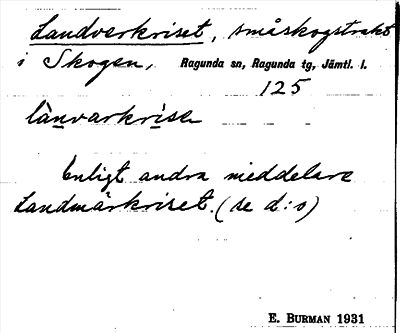 Landverkriset, småskogstrakt
i Skogen, Ragunda sn, Ragunda tg, Jämtl. l.
125
lànvarkrise
Enligt andra meddelare
Landmärkriset. (se d:o)
E. BURMAN 1931